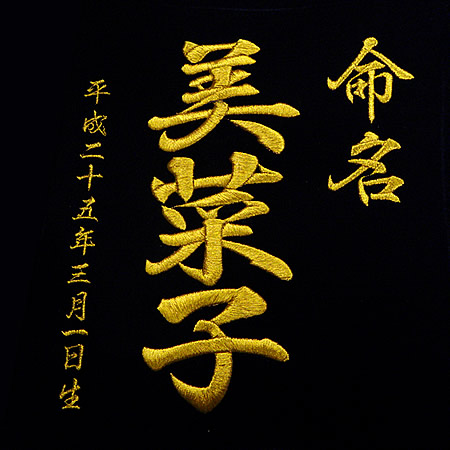 命名
美菜子
平成二十五年三月一日生